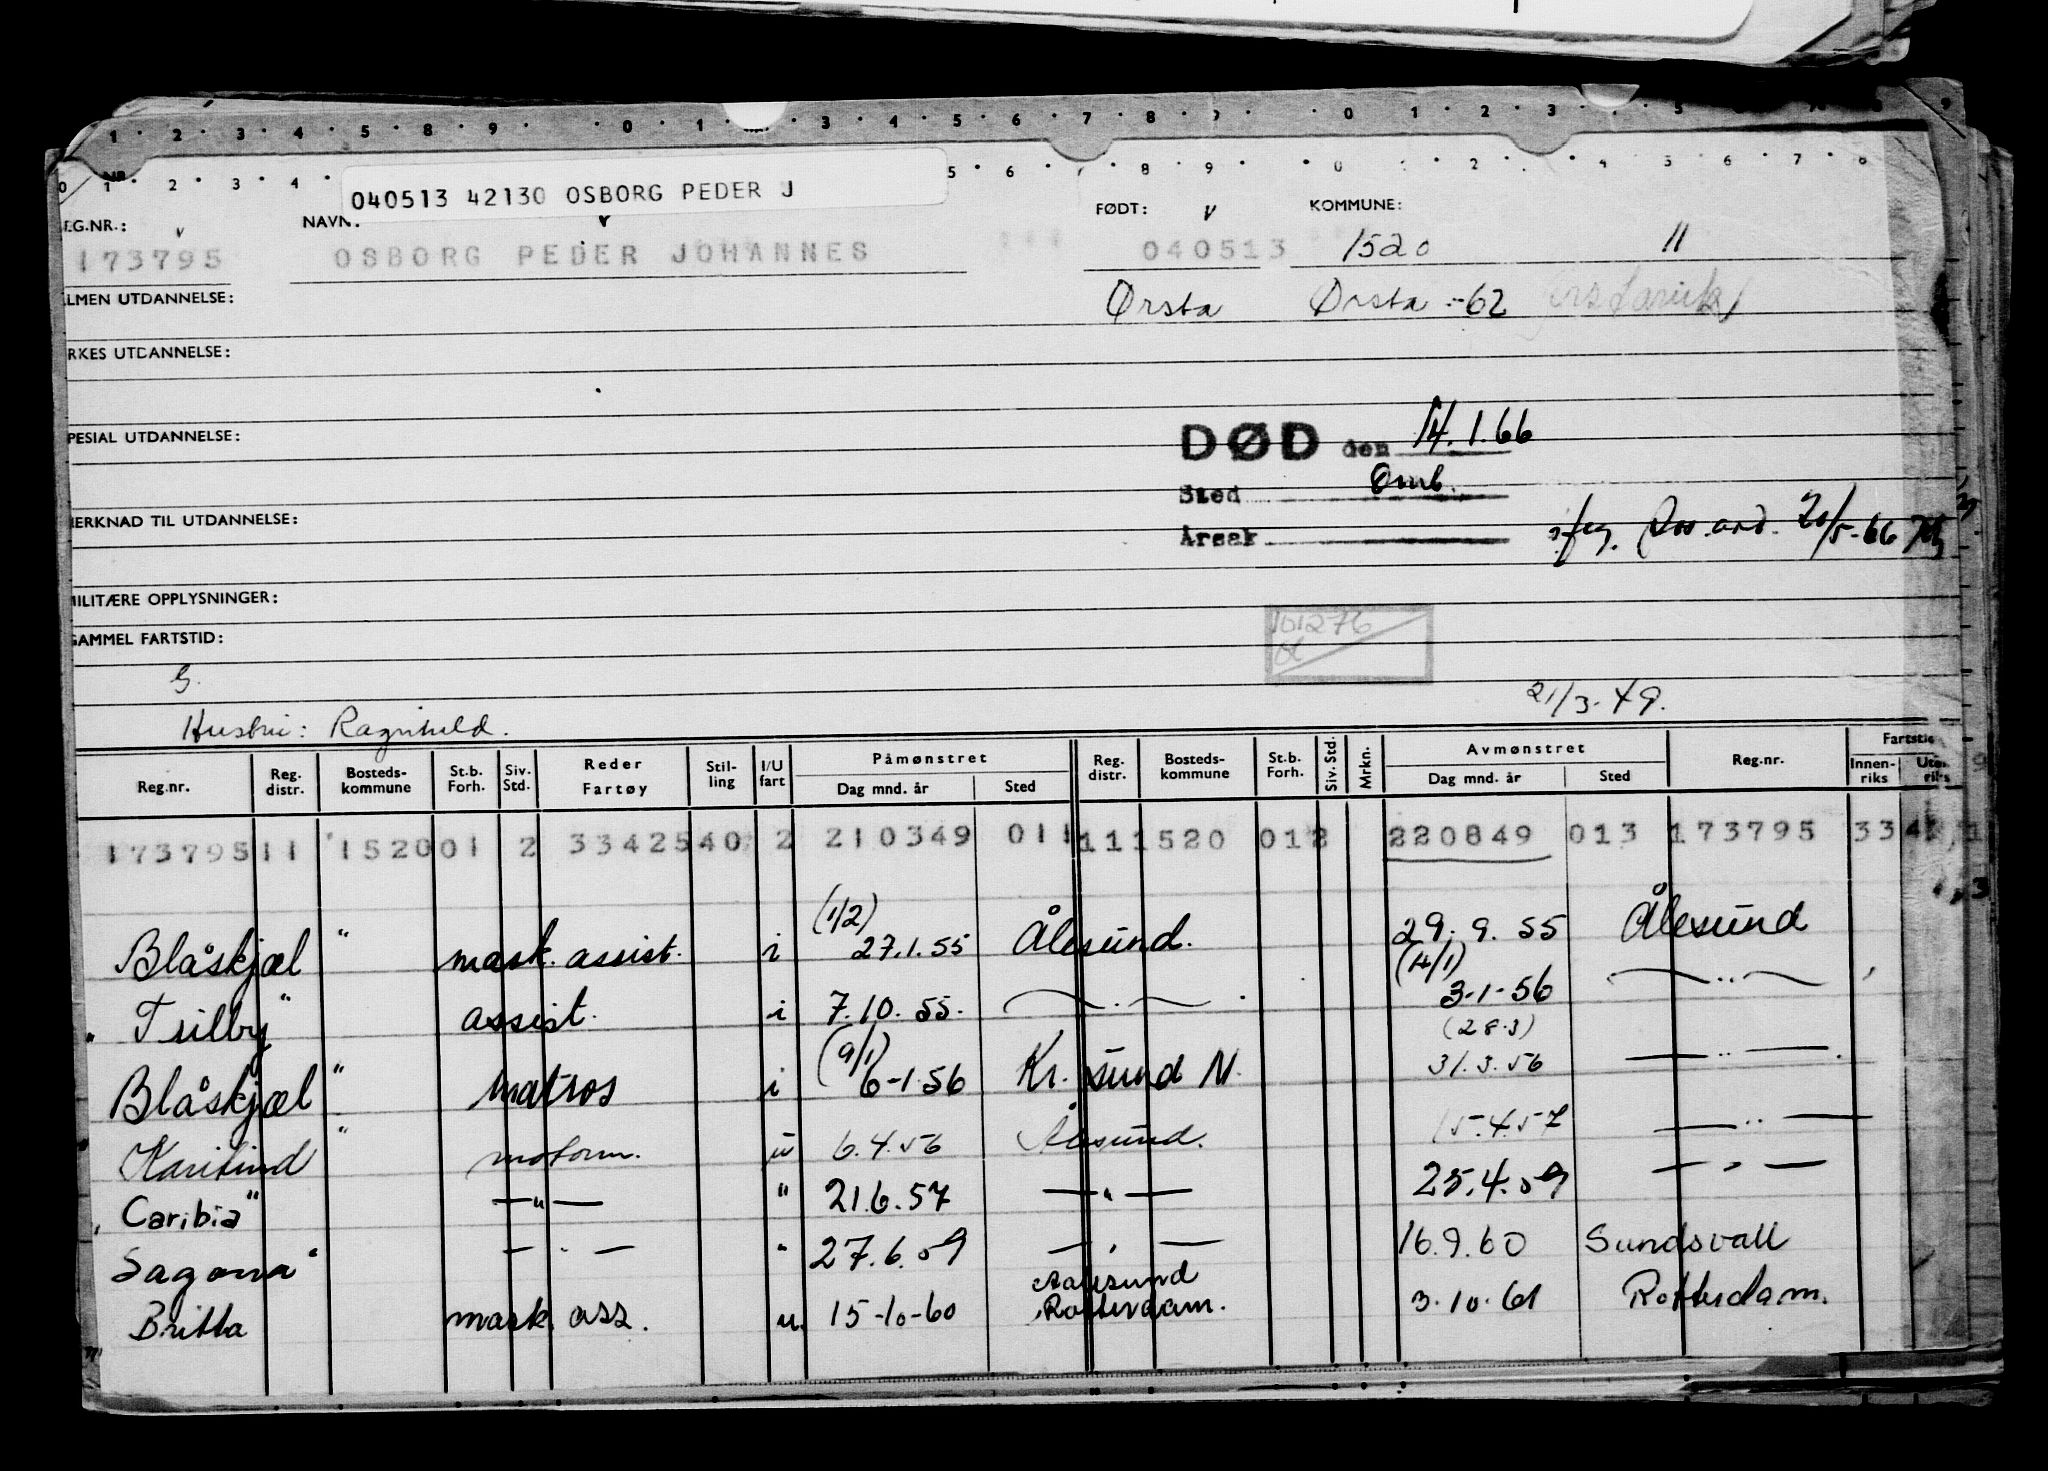 1 2 3 4 5 8 9 0 1 3 4 5 6 7 8 9 0 1 2 3 5 8 9
0 1 2 3 4 5 6 8 9 0 2 4 5 6 7 8
040513 42130 OSBORG PEDER J
EG.NR.: v NAVN. v FØDT: v KOMMUNE:
173795 OSBORG PEDER JOHANNES 040513 1520 11
LMEN UTDANNELSE: Ørsta Ørsta -62
RKES UTDANNELSE:
PESIAL UTDANNELSE:
DØD den 14.1.66
Sted Omb.
MERKNAD TIL UTDANNELSE:
Årsak 20/5-66
MILITÆRE OPPLYSNINGER:
GAMMEL FARTSTID:
101276
G.
21/3-49.
Hustru: Ragnhild.
Reg.nr. Reg. distr. Bosteds- kommune St.b. Forh. Siv. Std. Reder Fartøy Stil- ling I/U fart Påmønstret Dag mnd. år Sted Reg. distr. Bosteds- kommune St.b. Forh. Siv. Std. Mrkn. Avmønstret Dag mnd. år Sted Reg.nr. Fartstid Innen- riks Uten- riks
173795 11 1520 01 2 3342540 2 210349 011 11 1520 01 2 220849 013 173795 334
Blåskjæl " mask. assist. i (1/2) 27.1.55 Ålesund. 29.9.55 Ålesund
"Trilby" assist. i 7.10.55. — " — (4/1) 3-1-56 — " —
Blåskjæl " matros i (9/1) 6-1-56 Kr. sund N. (28.3) 31.3.56 — " —
"Karitind " motorm. u 6.4.56 Ålesund. 15.4.57 — " —
"Caribia" — " — " 21.6.57 — " — 25.4.59 — " —
Sagona" — " — " 27.6.59 — " — 16.9.60 Sundsvall
Britta mask. ass. u. 15-10-60 Aalesund Rotterdam. 3.10.61 Rotterdam.